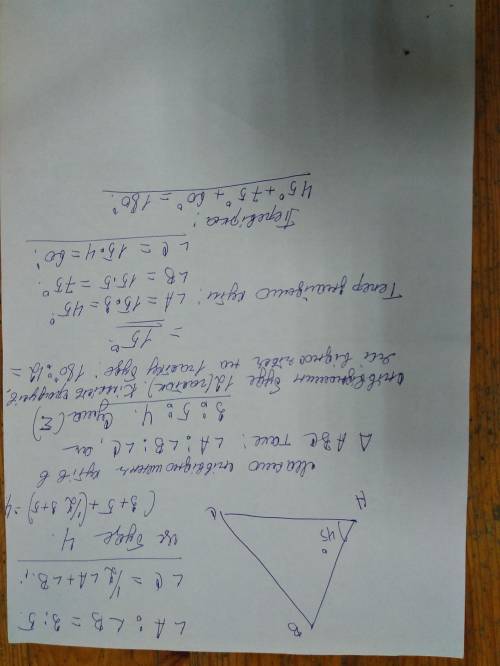 ∠A : ∠B = 3:5.
∠C = 1/2 ∠A + ∠B;
це буде 4.
(3+5+(1/2 3+5)=4
B
45°
A
C
маємо співвідношення кутів в
△ABC таке: ∠A : ∠B : ∠C, як
3:5:4. Сума (Σ)
співвідношень буде 12 (частин). Кількість градусів,
на 1 частку буде: 180°:12 =
= 15°.
Тепер знайдемо кути:
∠A = 15·3 = 45°
∠B = 15·5 = 75°.
∠C = 15·4 = 60°.
Перевірка:
45° + 75° + 60° = 180°.